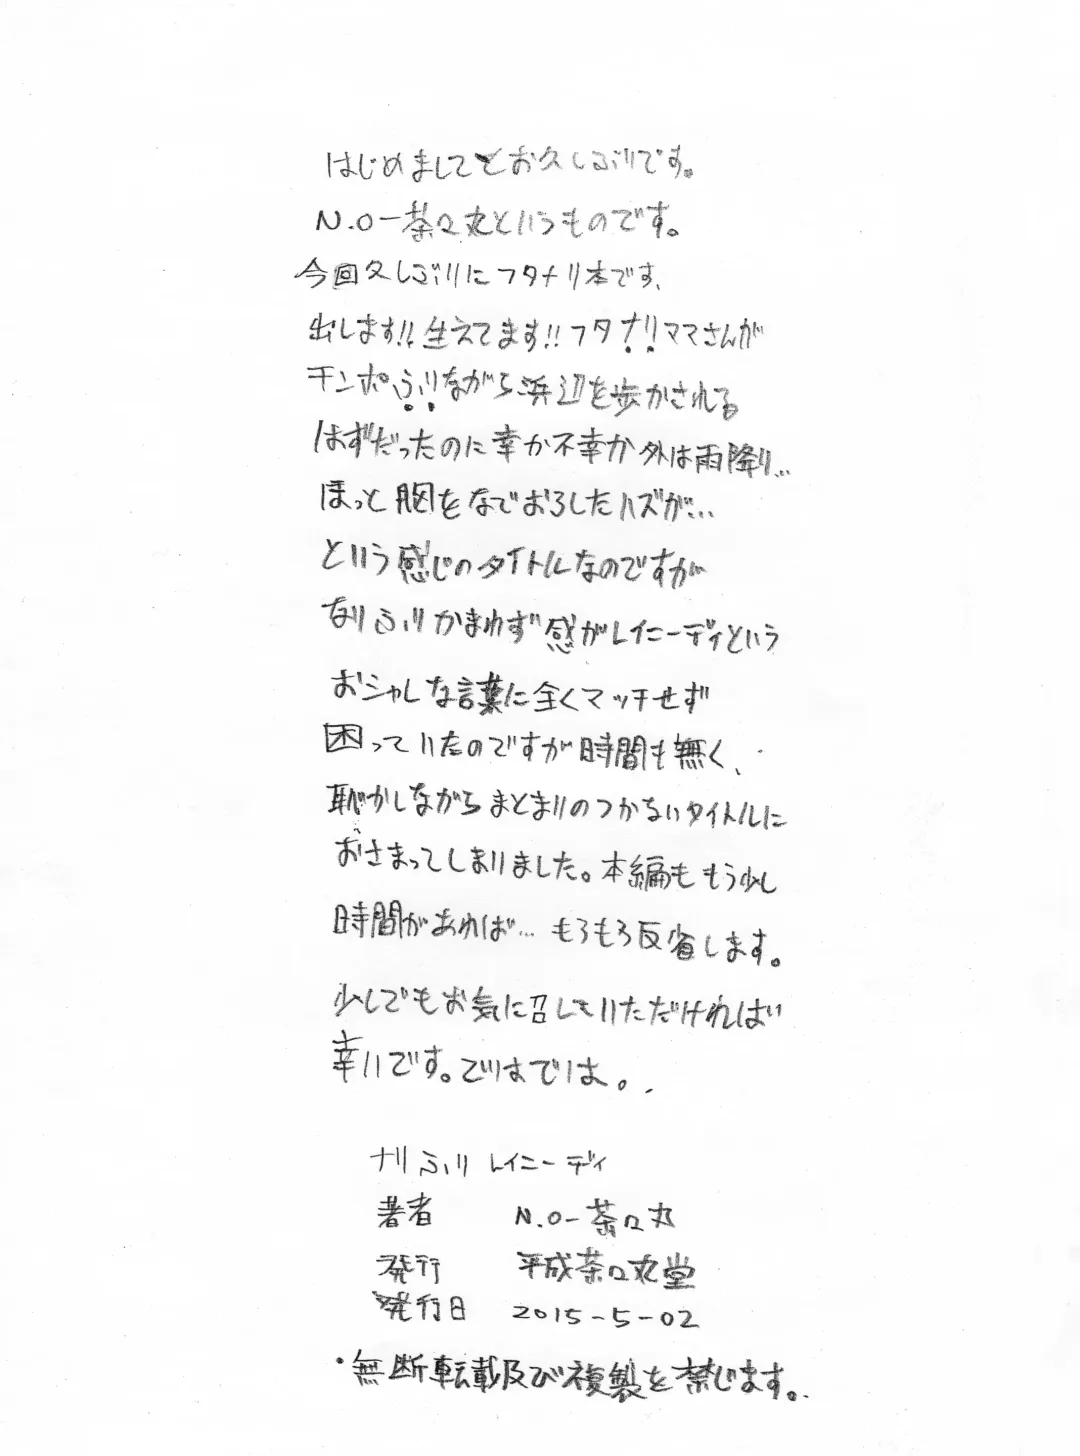 はじめましてとお久しぶりです。
N.O-茶々丸というものです。
今回久しぶりにフタナリ本です、
出します!!生えてます!!フタナリママさんが
チンポふりながら浜辺を歩かされる
はずだったのに幸か不幸か外は雨降り…
ほっと胸をなでおろしたハズが…
という感じのタイトルなのですが
なりふりかまわず感がレイニーディという
おシャレな言葉に全くマッチせず
困っていたのですが時間も無く、
恥かしながらまとまりのつかないタイトルに
おさまってしまりました。本編ももう少し
時間があれば…もろもろ反省します。
少しでもお気に召していただければ
幸いです。ではでは。
ナリふりレイニーディ
著者 N.O-茶々丸
発行 平成茶々丸堂
発行日 2015-5-02
・無断転載及び複製を禁じます。